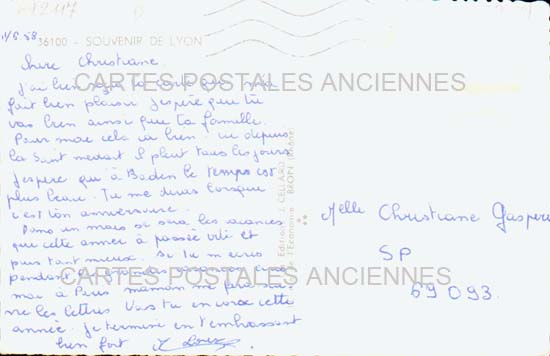 36100 - SOUVENIR DE LYON
Chere Christiane.
J'ai bien reçu ta carte qui ma
fait bien plaisir j'espère que tu
vas bien ainsi que ta famille.
Pour moi cela va bien. ici depuis
la Saint medard il pleut tous les jours
j'espère qu'à Baden le temps est
plus beau. Tu me diras lorsque
c'est ton anniversaire.
Dans un mois se sera les vacances
que cette année à passée vite et
puis tant mieux. Si tu m'ecris
pendant les
moi à Paris maman me fera suivre
les lettres. Vas tu en corse cette
année. Je termine en t'embrassant
bien fort
Melle Christiane Gasperi
SP
69 093.
Editions J. CELLARD
BRON (Rhône)
CARTES POSTALES ANCIENNES
CARTES POSTALES ANCIENNES